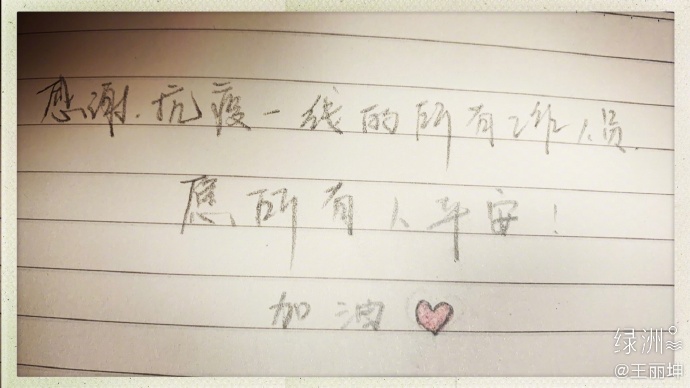 感谢.抗疫一线的所有工作人员.
愿所有人平安！
加油
绿洲
@王丽坤